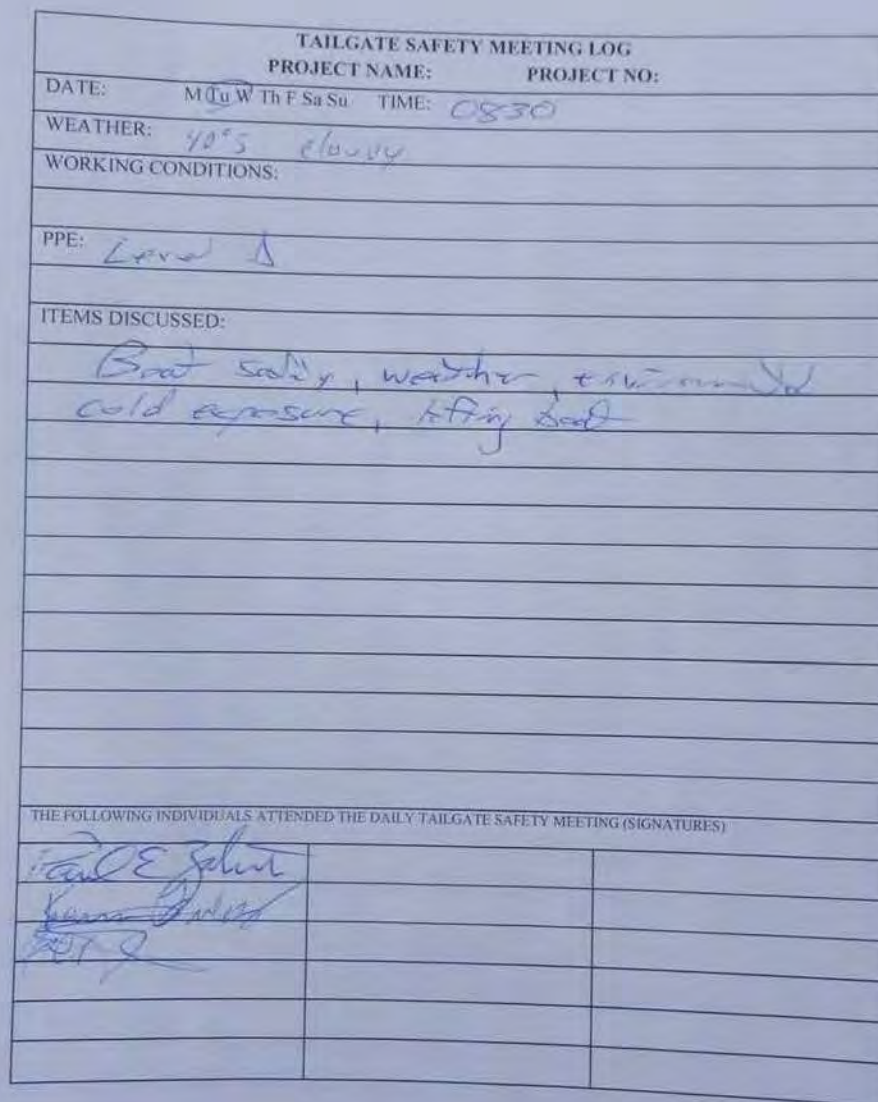 TAILGATE SAFETY MEETING LOG
PROJECT NAME: PROJECT NO:
DATE: M Tu W Th F Sa Su TIME: 0830
WEATHER: 40°s cloudy
WORKING CONDITIONS:
PPE: Level D
ITEMS DISCUSSED:
Boat safety, weather, environmental
cold exposure, lifting boat
THE FOLLOWING INDIVIDUALS ATTENDED THE DAILY TAILGATE SAFETY MEETING (SIGNATURES)
Paul E